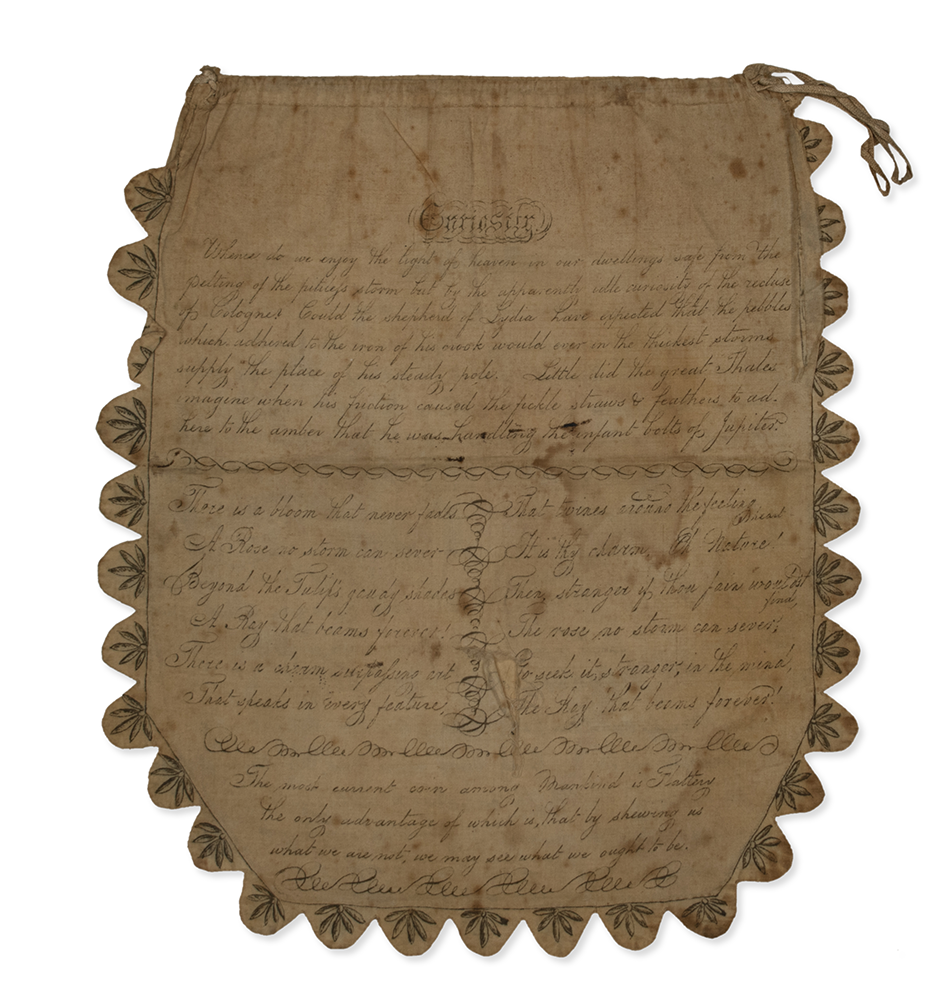 Curiosity.
Whence do we enjoy the light of heaven in our dwellings safe from the
pelting of the pitiless storm but by the apparently idle curiosity of the recluse
of Cologne? Could the shepherd of Lydia have expected that the pebbles
which adhered to the iron of his crook would ever in the thickest storms
supply the place of his steady pole. Little did the great Thales
imagine when his friction caused the fickle straws & feathers to ad-
here to the amber that he was handling the infant bolts of Jupiter.
There is a bloom that never fades
A Rose no storm can sever
Beyond the Tulip's gauay shades
A Ray that beams forever!
There is a charm surpassing art
That speaks in every feature,
That twines around the feeling
heart
It is thy charm, Oh Nature!
Then, stranger if thou fain wouldst
find,
The rose no storm can sever,
Go seek it, stranger, in the mind,
The Ray that beams forever!
The most current coin among Mankind is Flattery
the only advantage of which is, that by shewing us
what we are not, we may see what we ought to be.